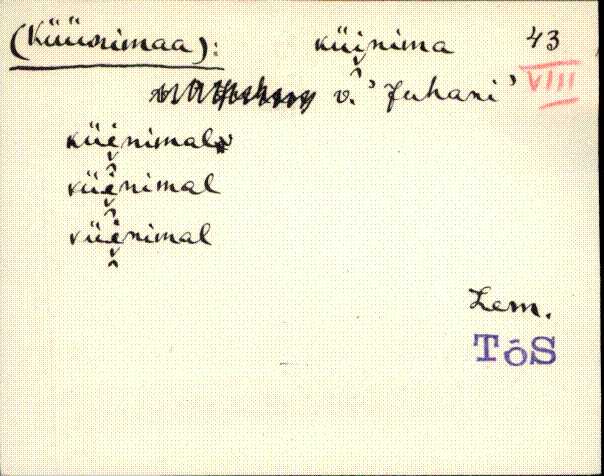 (Küünimaa): küi̯nima 43
v. 'Juhani' VIII
küe̯nimal
küe̯nimal
küe̯nimal
Lem.
TôS